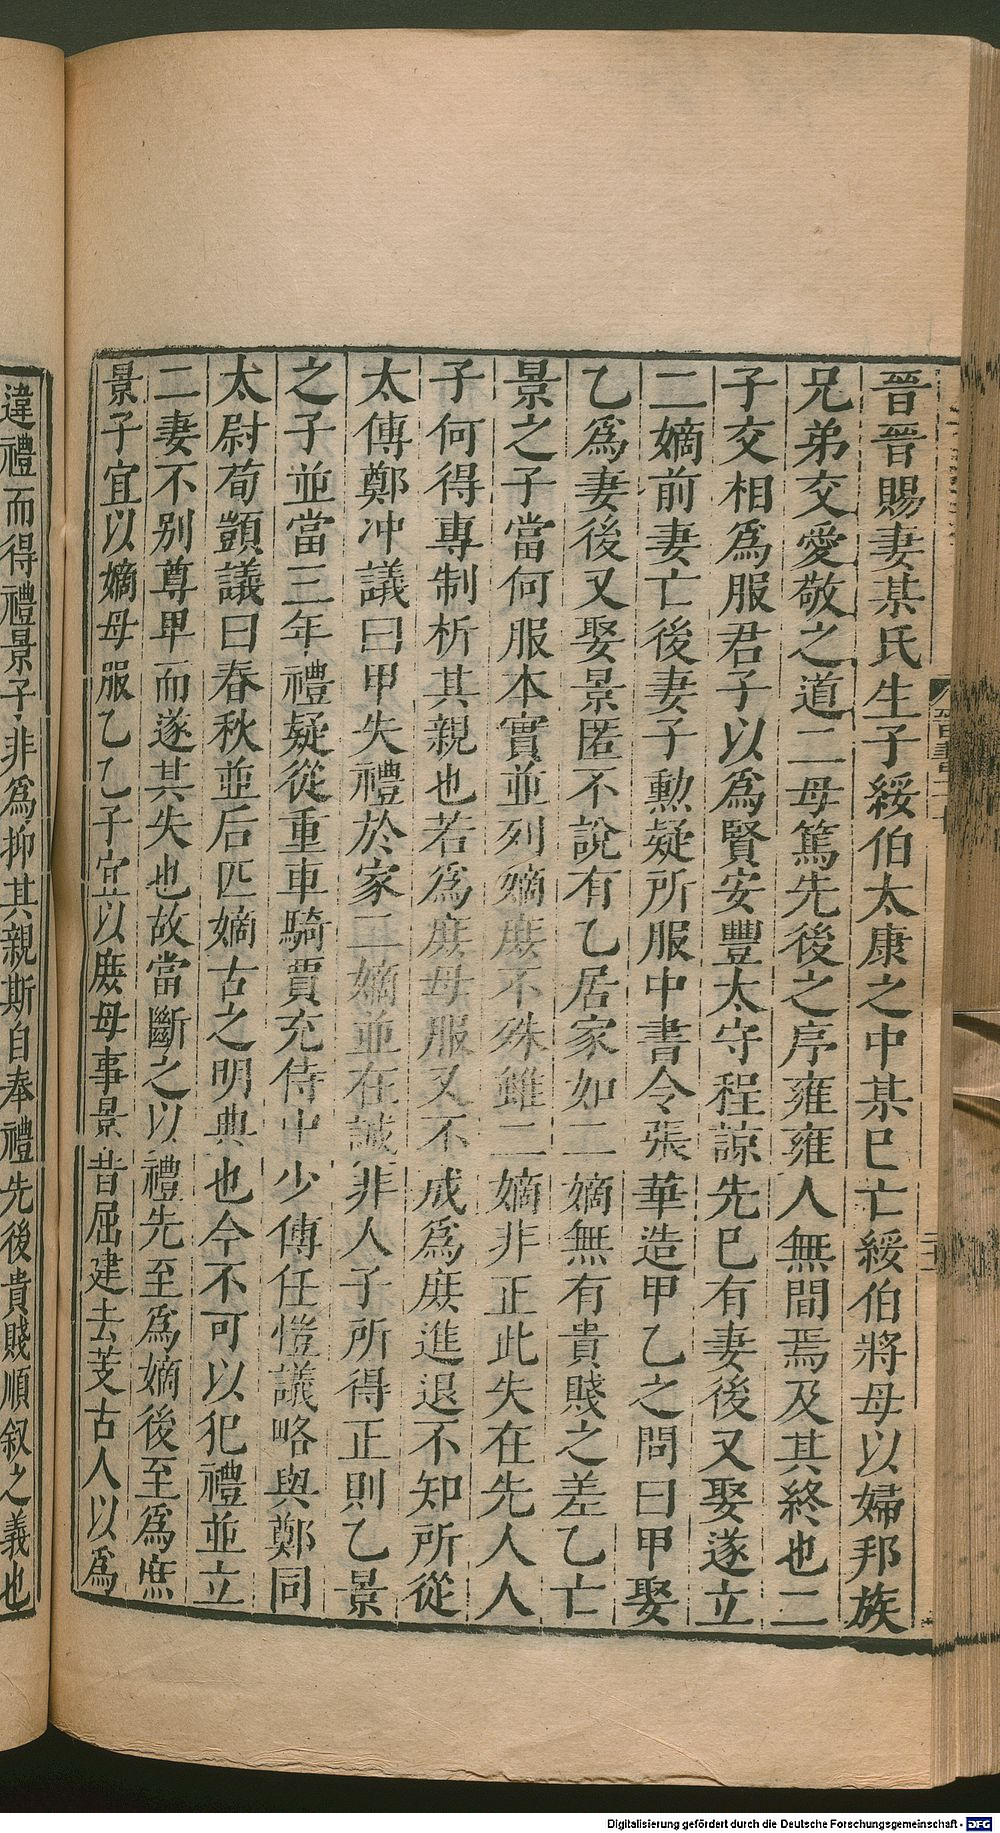 晉晉賜妻某氏生子綏伯太康之中某巳亡綏伯將母以婦邦族
兄弟交愛敬之道二母篤先後之序雍雍人無間焉及其終也二
子交相爲服君子以爲賢安豐太守程諒先巳有妻後又娶遂立
二嫡前妻亡後妻子勲疑所服中書令張華造甲乙之問曰甲娶
乙爲妻後又娶景匿不說有乙居家如二嫡無有貴賤之差乙亡
景之子當何服本實並列嫡庶不殊雖二嫡非正此失在先人人
子何得專制析其親也若爲庶母服又不成爲庶進退不知所從
太傅鄭冲議曰甲失禮於家二嫡並在誠非人子所得正則乙景
之子並當三年禮疑從重車騎賈充侍中少傅任愷議略與鄭同
太尉荀顗議曰春秋並后匹嫡古之明典也今不可以犯禮並立
二妻不别尊卑而遂其失也故當斷之以禮先至爲嫡後至爲庶
景子宜以嫡母服乙乙子宜以庶母事景昔屈建去芰古人以爲
違禮而得禮景子非爲抑其親斯自奉禮先後貴賤順叙之義也
Digitalisierung gefördert durch die Deutsche Forschungsgemeinschaft - DFG